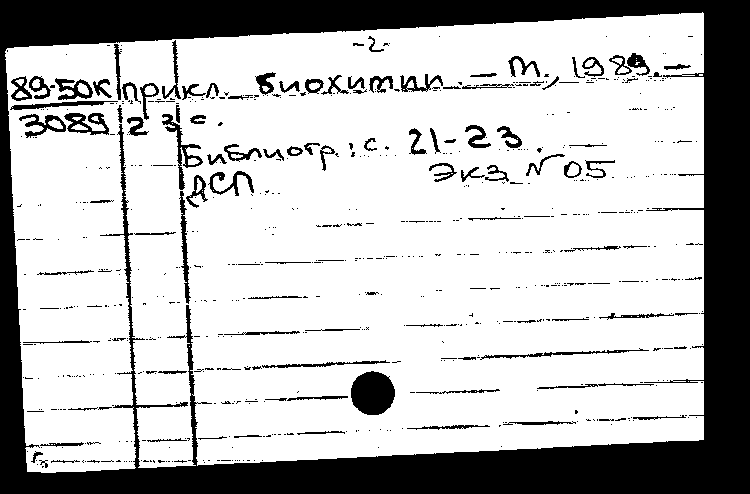 -2-
89-50К прикл. биохимии. – М., 1989. –
3089 23 с.
Библиогр.: с. 21-23.
Экз. №05
ДСП
г.